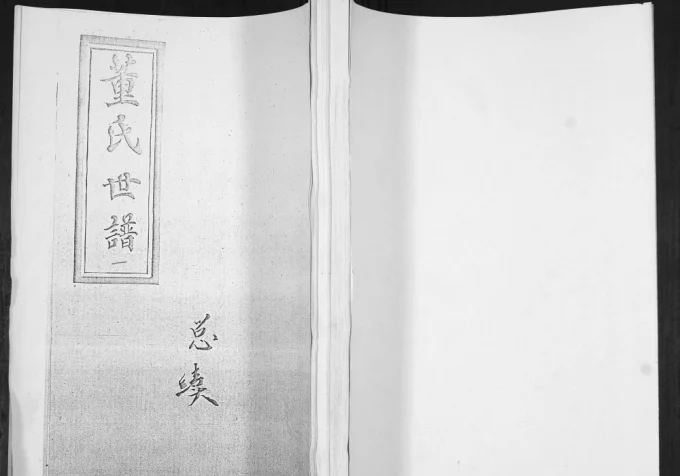 董氏世譜一
总续